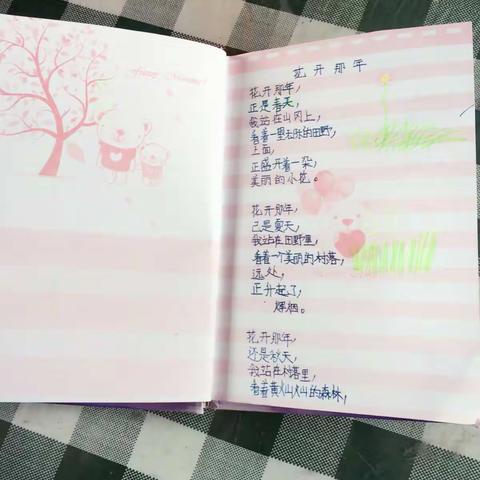 花开那年
花开那年,
正是春天,
我站在山冈上,
看着一里无际的田野,
上面,
正盛开着一朵,
美丽的小花。
花开那年,
已是夏天,
我站在田野里,
看着一个美丽的村落,
远处,
正升起了,
炊烟。
花开那年,
还是秋天,
我站在村落里,
看着黄灿灿的森林,